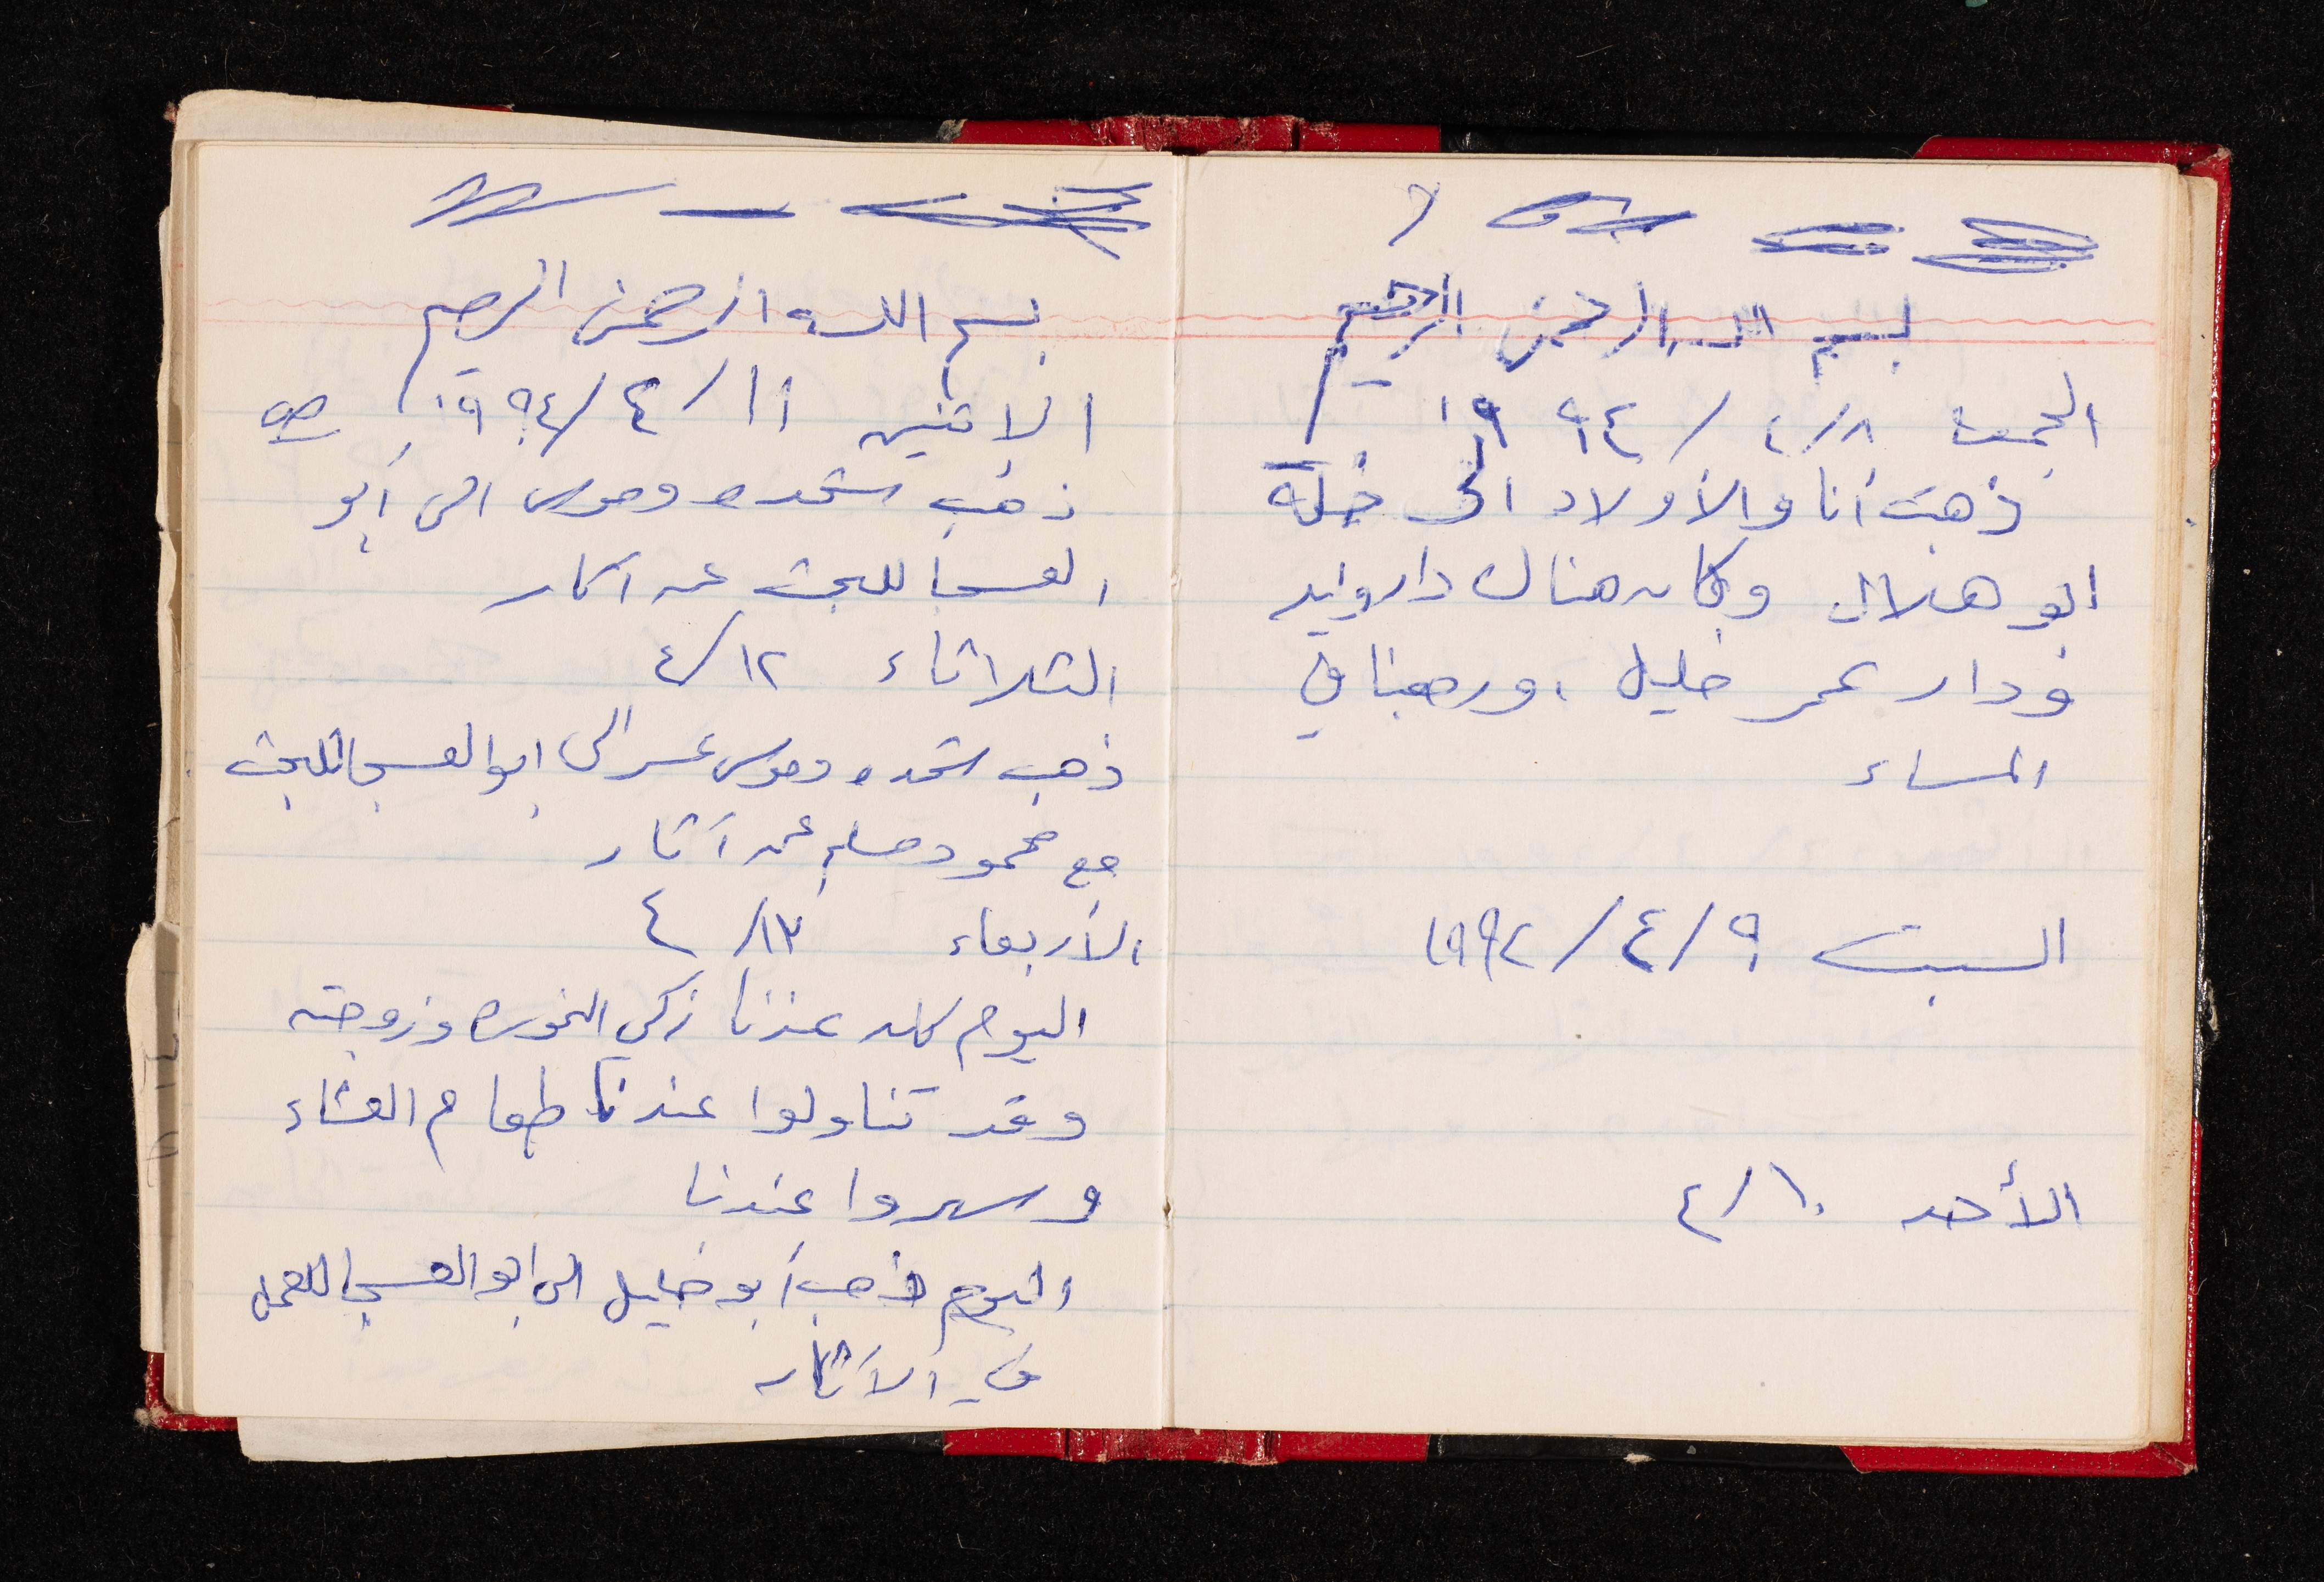 بسم الله الرحمن الرحيم
الجمعة ٤/٨ / ١٩٩٤
ذهبت أنا والأولاد الى خلة
ابو هلال وكان هناك دار
ودار عمر خليل ، ورجعنا في
المساء
السبت ٩ / ٤ / ١٩٩٢
الأحد ١٠ / ٤
بسم الله الرحمن الرحيم
الاثنين ١١ / ٤ / ١٩٩٤
ذهب شحده وموسى الى أبو
العسجا للبحث عن اثار
الثلاثاء ١٢ / ٤
ذهب شحده وموسى الى ابو العسجا للبحث
مع محمود عن آثار
الأربعاء ١٣ / ٤
اليوم كان عندنا زكي وزوجته
وقد تناولوا عندنا طعام العشاء
وسهروا عندنا
اليوم ذهب أبو خليل الى ابو العسجا للعمل
في الآثار